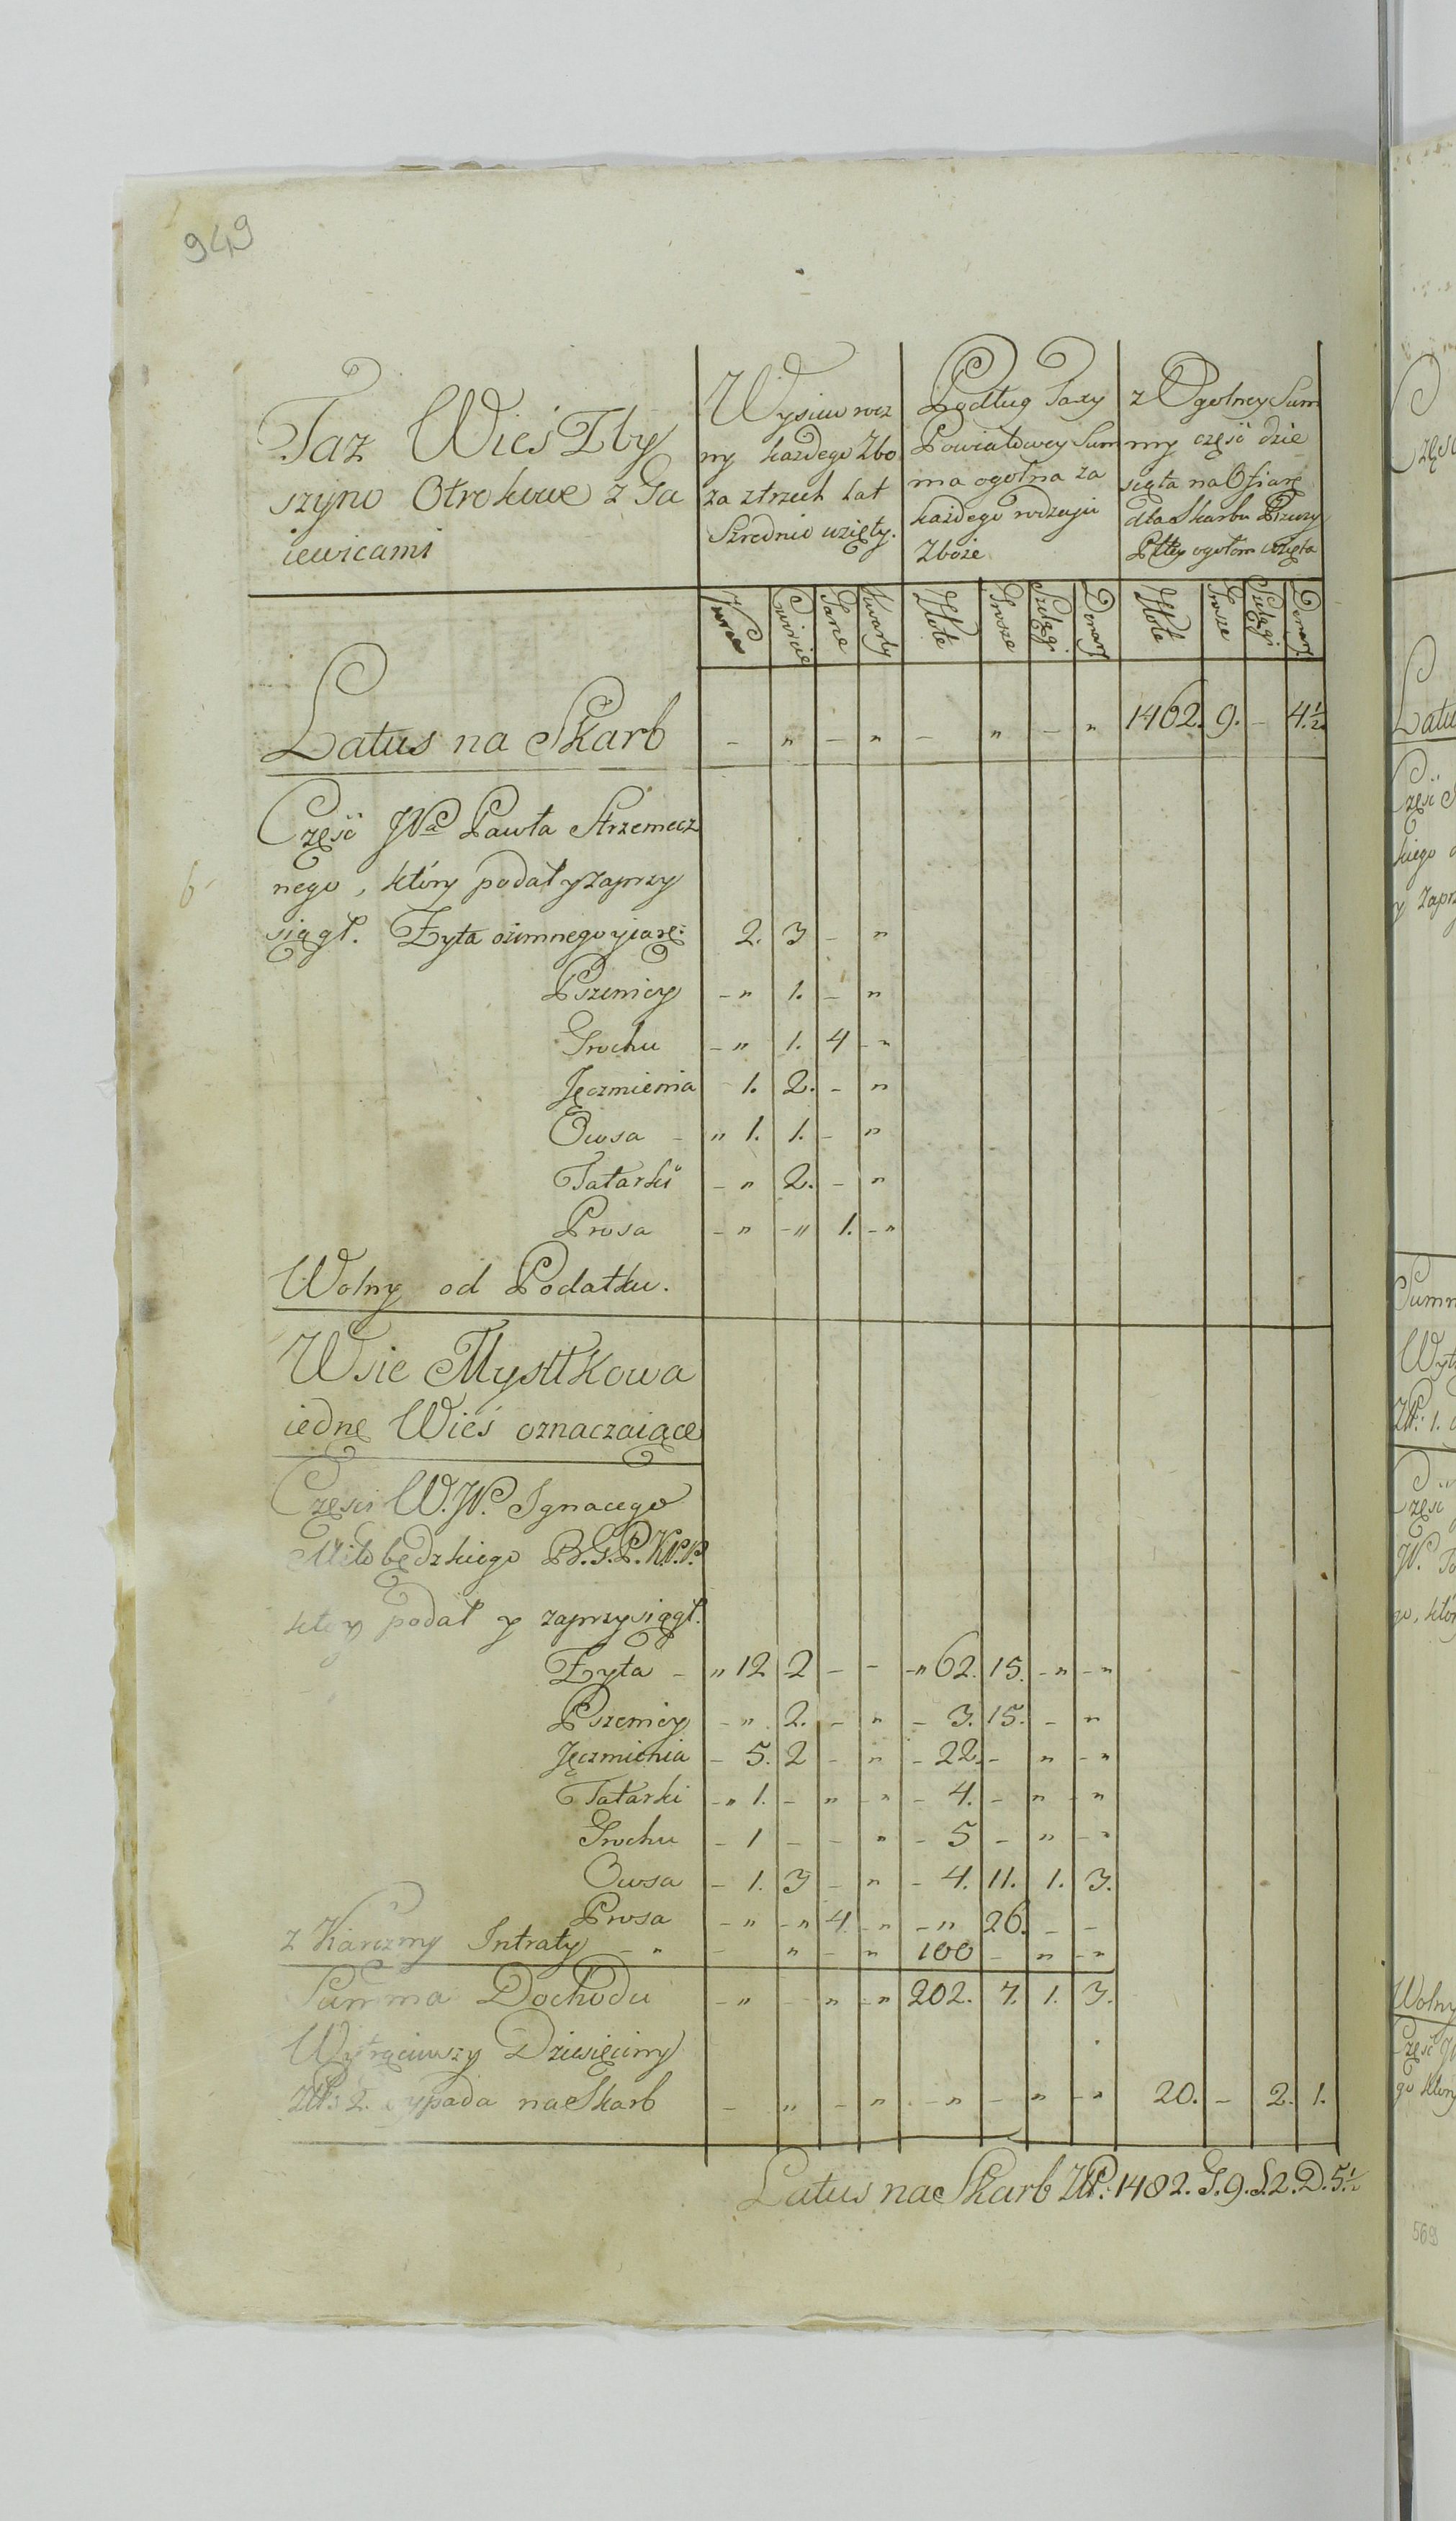 949
Taz Wieś Zby
szyno Otrokowe z Ga
iewicami
Wysiew rocz
ny każdego Zbo
za ztrzech Lat
Szrednio wzięty.
Podług Taxy
Powiatowey Sum
ma ogolna za
każdego rodzaju
Zboże
z Ogolney Sum
my część dzie
sięta na Ofiarę
dla Skarbu Przezy
Pltey ogołom wzięta
Korce Cwircie Garce Kwarty Złote Grosze Szelągi Denary Złote Grosze Szelągi Denary
Latus na Skarb - " - " - " - " 1462. 9. - 4.½
Część JPa Pawła Strzemecz
nego, który podał y zaprzy
siągł. Żyta ozimnego y iarę: 2. 3 - "
6
Pszenicy - " 1. - "
Grochu - " 1. 4 - "
Jęczmienia 1. 2. - "
Owsa - " 1. 1. - "
Tatarki - " 2. - "
Prosa - " - " 1. - "
Wolny od Podatku.
Wsie Mysttkowa
iednę Wieś oznaczaiące
Częsci W.JP. Ignacego
Miłobędzkiego B.G.P.K.P.P.
który podał y zaprzysiągł.
Żyta - " 12 2 - - - " 62. 15. - " - "
Pszenicy - " 2. - " - 3. 15. - "
Jęczmienia - 5. 2 - " - 22. - " - "
Tatarki - " 1. - " - " - 4. - " - "
Grochu - 1 - - " - 5 - " - "
Owsa - 1. 3 - " - 4. 11. 1. 3.
Prosa - " - " 4. - " - " 26. - -
z Karczmy Intraty - " - " - " 100 - " - "
Summa Dochodu - " - " - " 202. 7. 1. 3.
Wytrąciwszy Dziesięciny
Złł: 2. wypada na Skarb - " - " - " - " - " 20. - 2. 1.
Latus na Skarb ZłP: 1482. G. 9. S. 2. D. 5.½
569